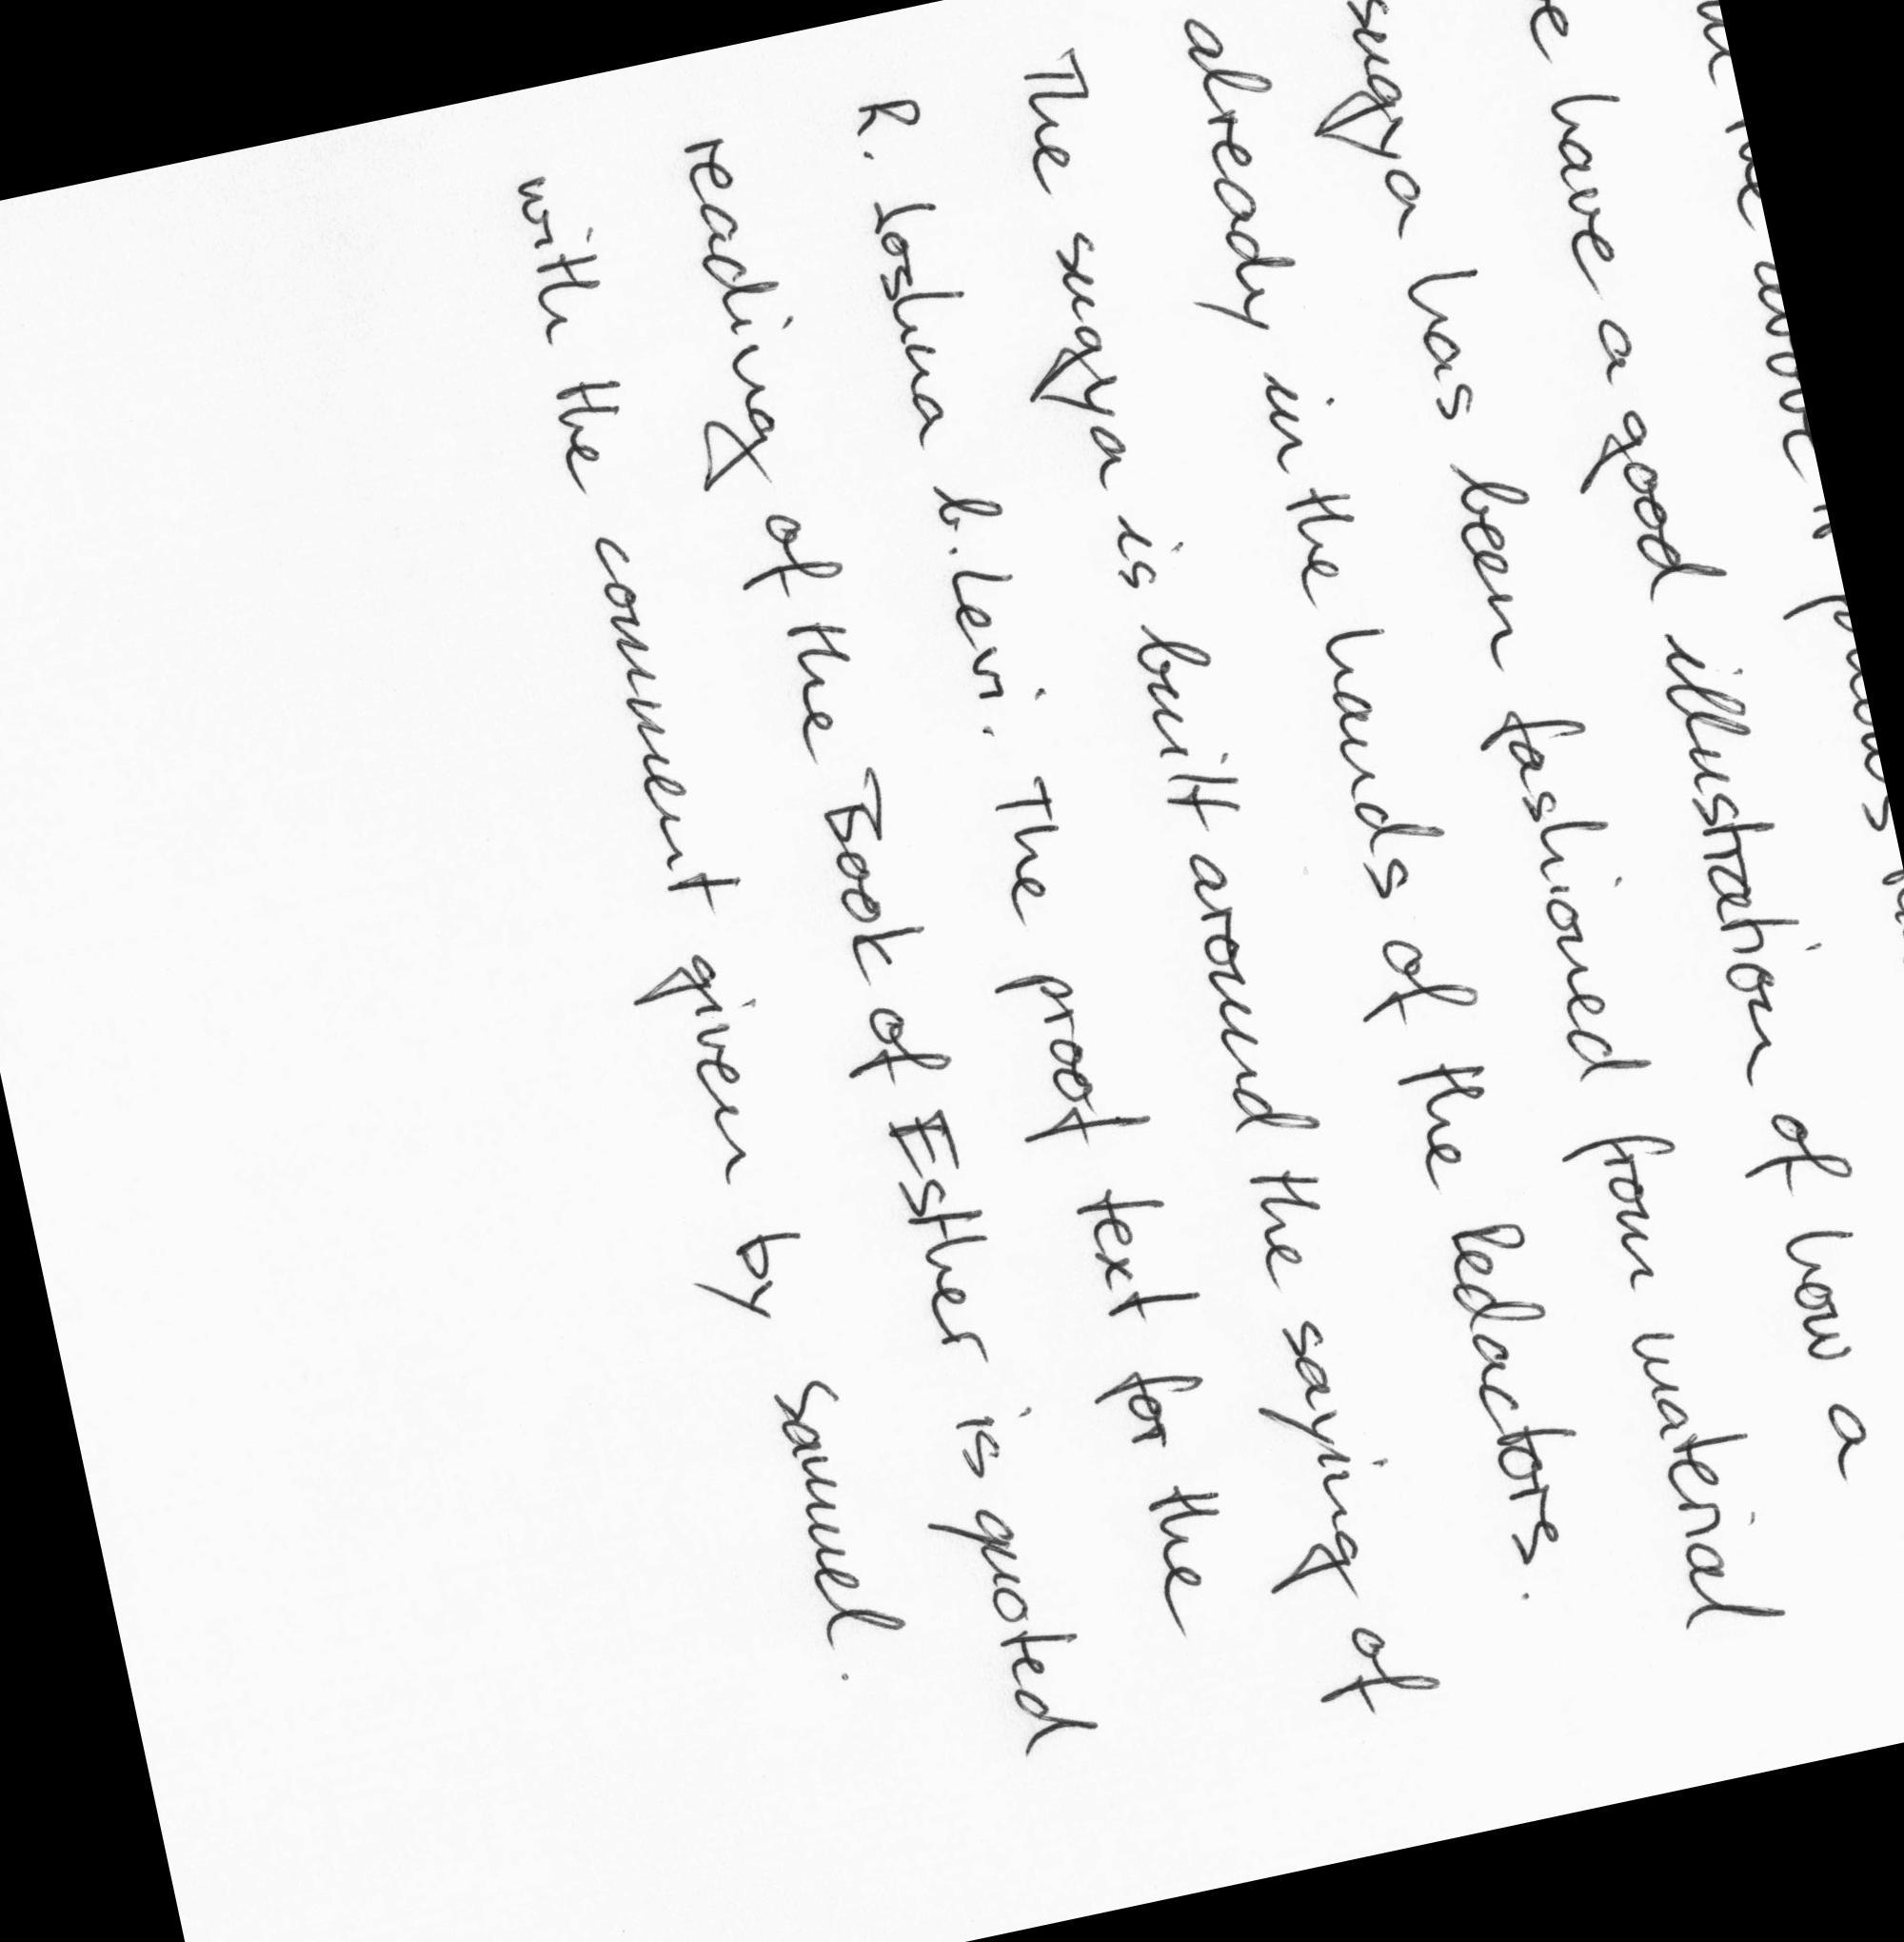 have a good illustration of how a
sugya has been fashioned from material
already in the hands of the Redactors.
The sugya is built around the saying of
R. Joshua b. Levi. The proof text for the
reading of the Book of Esther is quoted
with the comment given by Samuel.